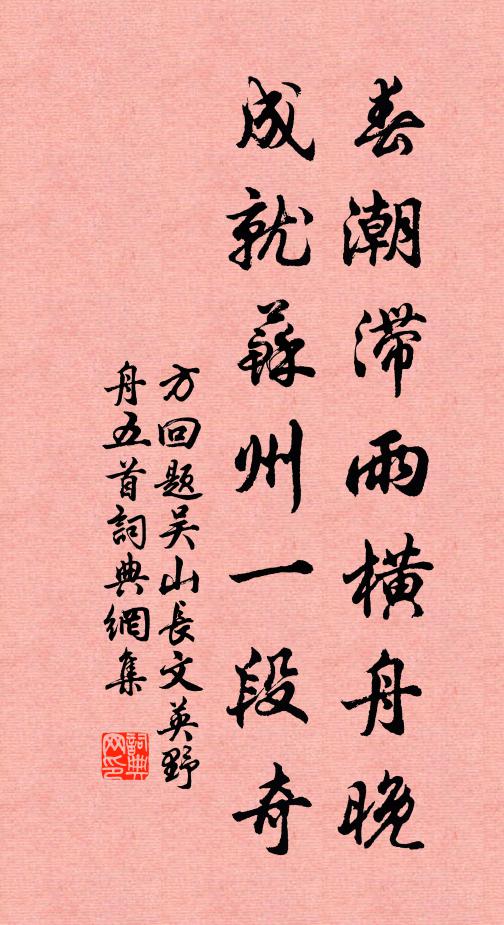 春潮滞雨橫舟晚
成就蘇州一段奇
方回題吴山長文英野
舟五首詞典網集
詞典网印